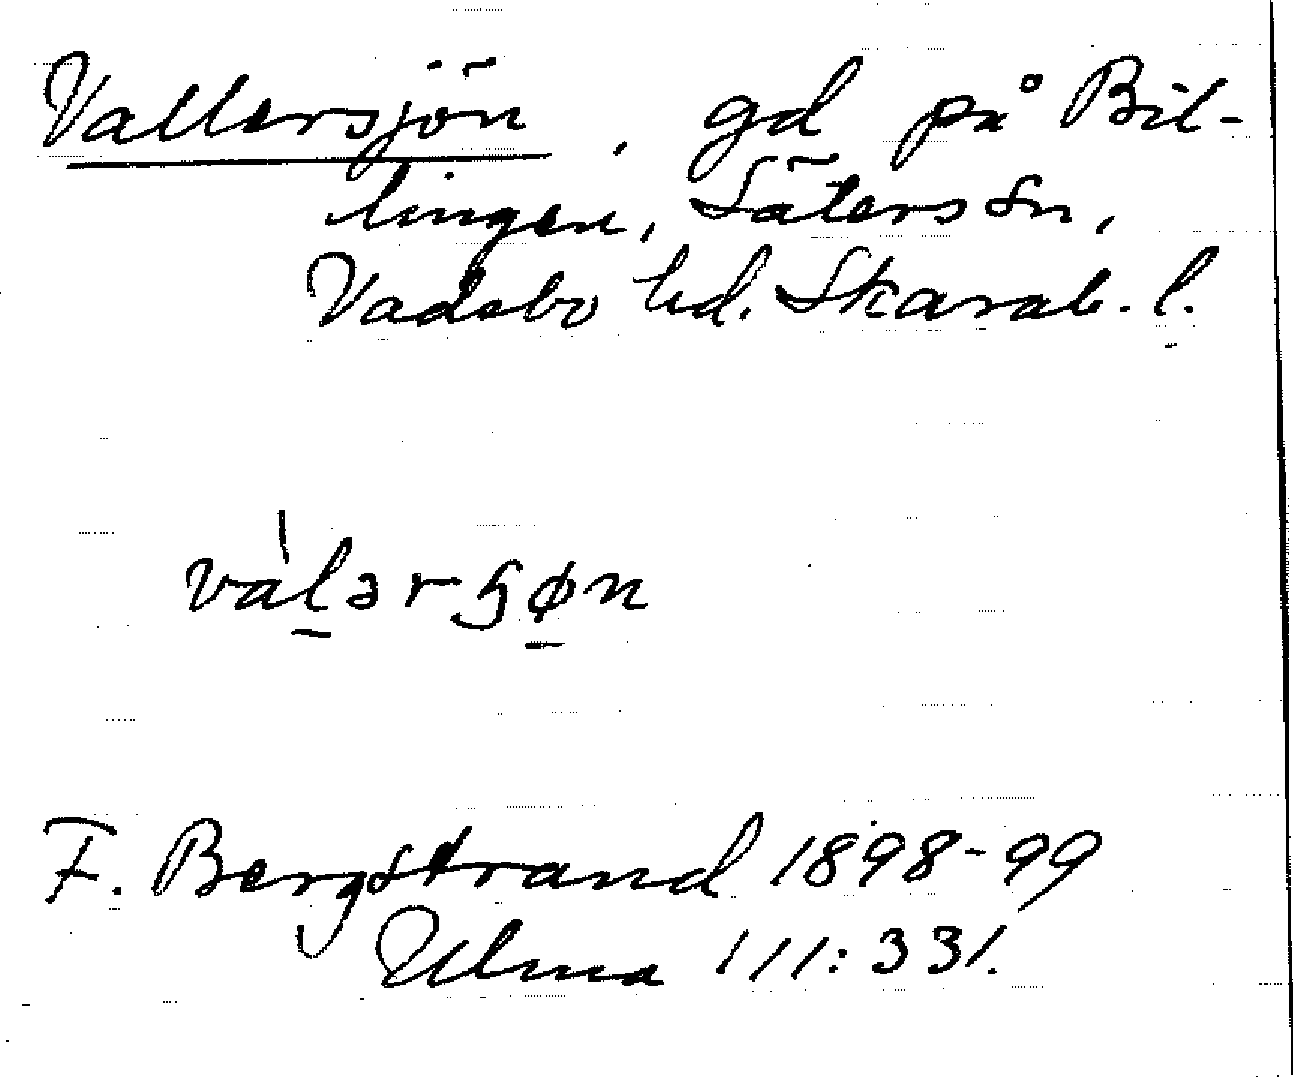 Vallersjön, gd på Bil-
lingen, Säters sn,
Vadsbo hd. Skarab. l.
vàl̠ərɧø̠n
F. Bergstrand 1898-99
Ulma 111:331.